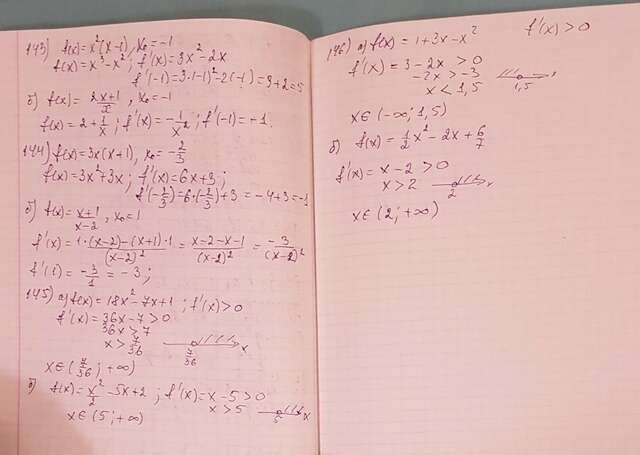 143) f(x)=x²(x-1), x₀=-1
f(x)=x³-x²; f'(x)=3x²-2x
f'(-1)=3·(-1)²-2·(-1)=3+2=5
б) f(x)= (2x+1)/x, x₀=-1
f(x)=2+1/x; f'(x)=-1/x²; f'(-1)=-1.
144) f(x)=3x(x+1), x₀=-2/3
f(x)=3x²+3x; f'(x)=6x+3;
f'(-2/3)=6·(-2/3)+3=-4+3=-1
б) f(x)=(x+1)/(x-2), x₀=1
f'(x)=(1·(x-2)-(x+1)·1)/(x-2)²=(x-2-x-1)/(x-2)²=-3/(x-2)²
f'(1)=-3/1=-3;
145) а) f(x)=18x²-7x+1; f'(x)>0
f'(x)=36x-7>0
36x>7
x>7/36
7/36 x
x∈(7/36; +∞)
б) f(x)=x²/2-5x+2; f'(x)=x-5>0
x>5
5 x
x∈(5;+∞)
146) а) f(x)=1+3x-x² f'(x)>0
f'(x)=3-2x>0
-2x>-3
x<1,5
1,5
x∈(-∞; 1,5)
б) f(x)=1/2x²-2x+6/7
f'(x)=x-2>0
x>2
2
x∈(2; +∞)